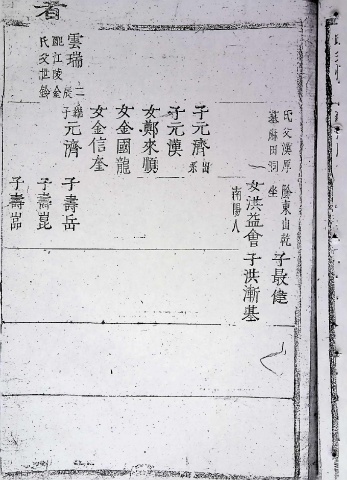 氏父漢厚 陰東山乾
墓麻田洞 坐
子最健
女洪益會 子洪漸基
南陽人
子元濟 出系
子元漢
女鄭來順
女金國龍
女金信奎
雲瑞 二 辰
配江陵金
氏父世
子元濟 子壽岳
子壽崑
子壽